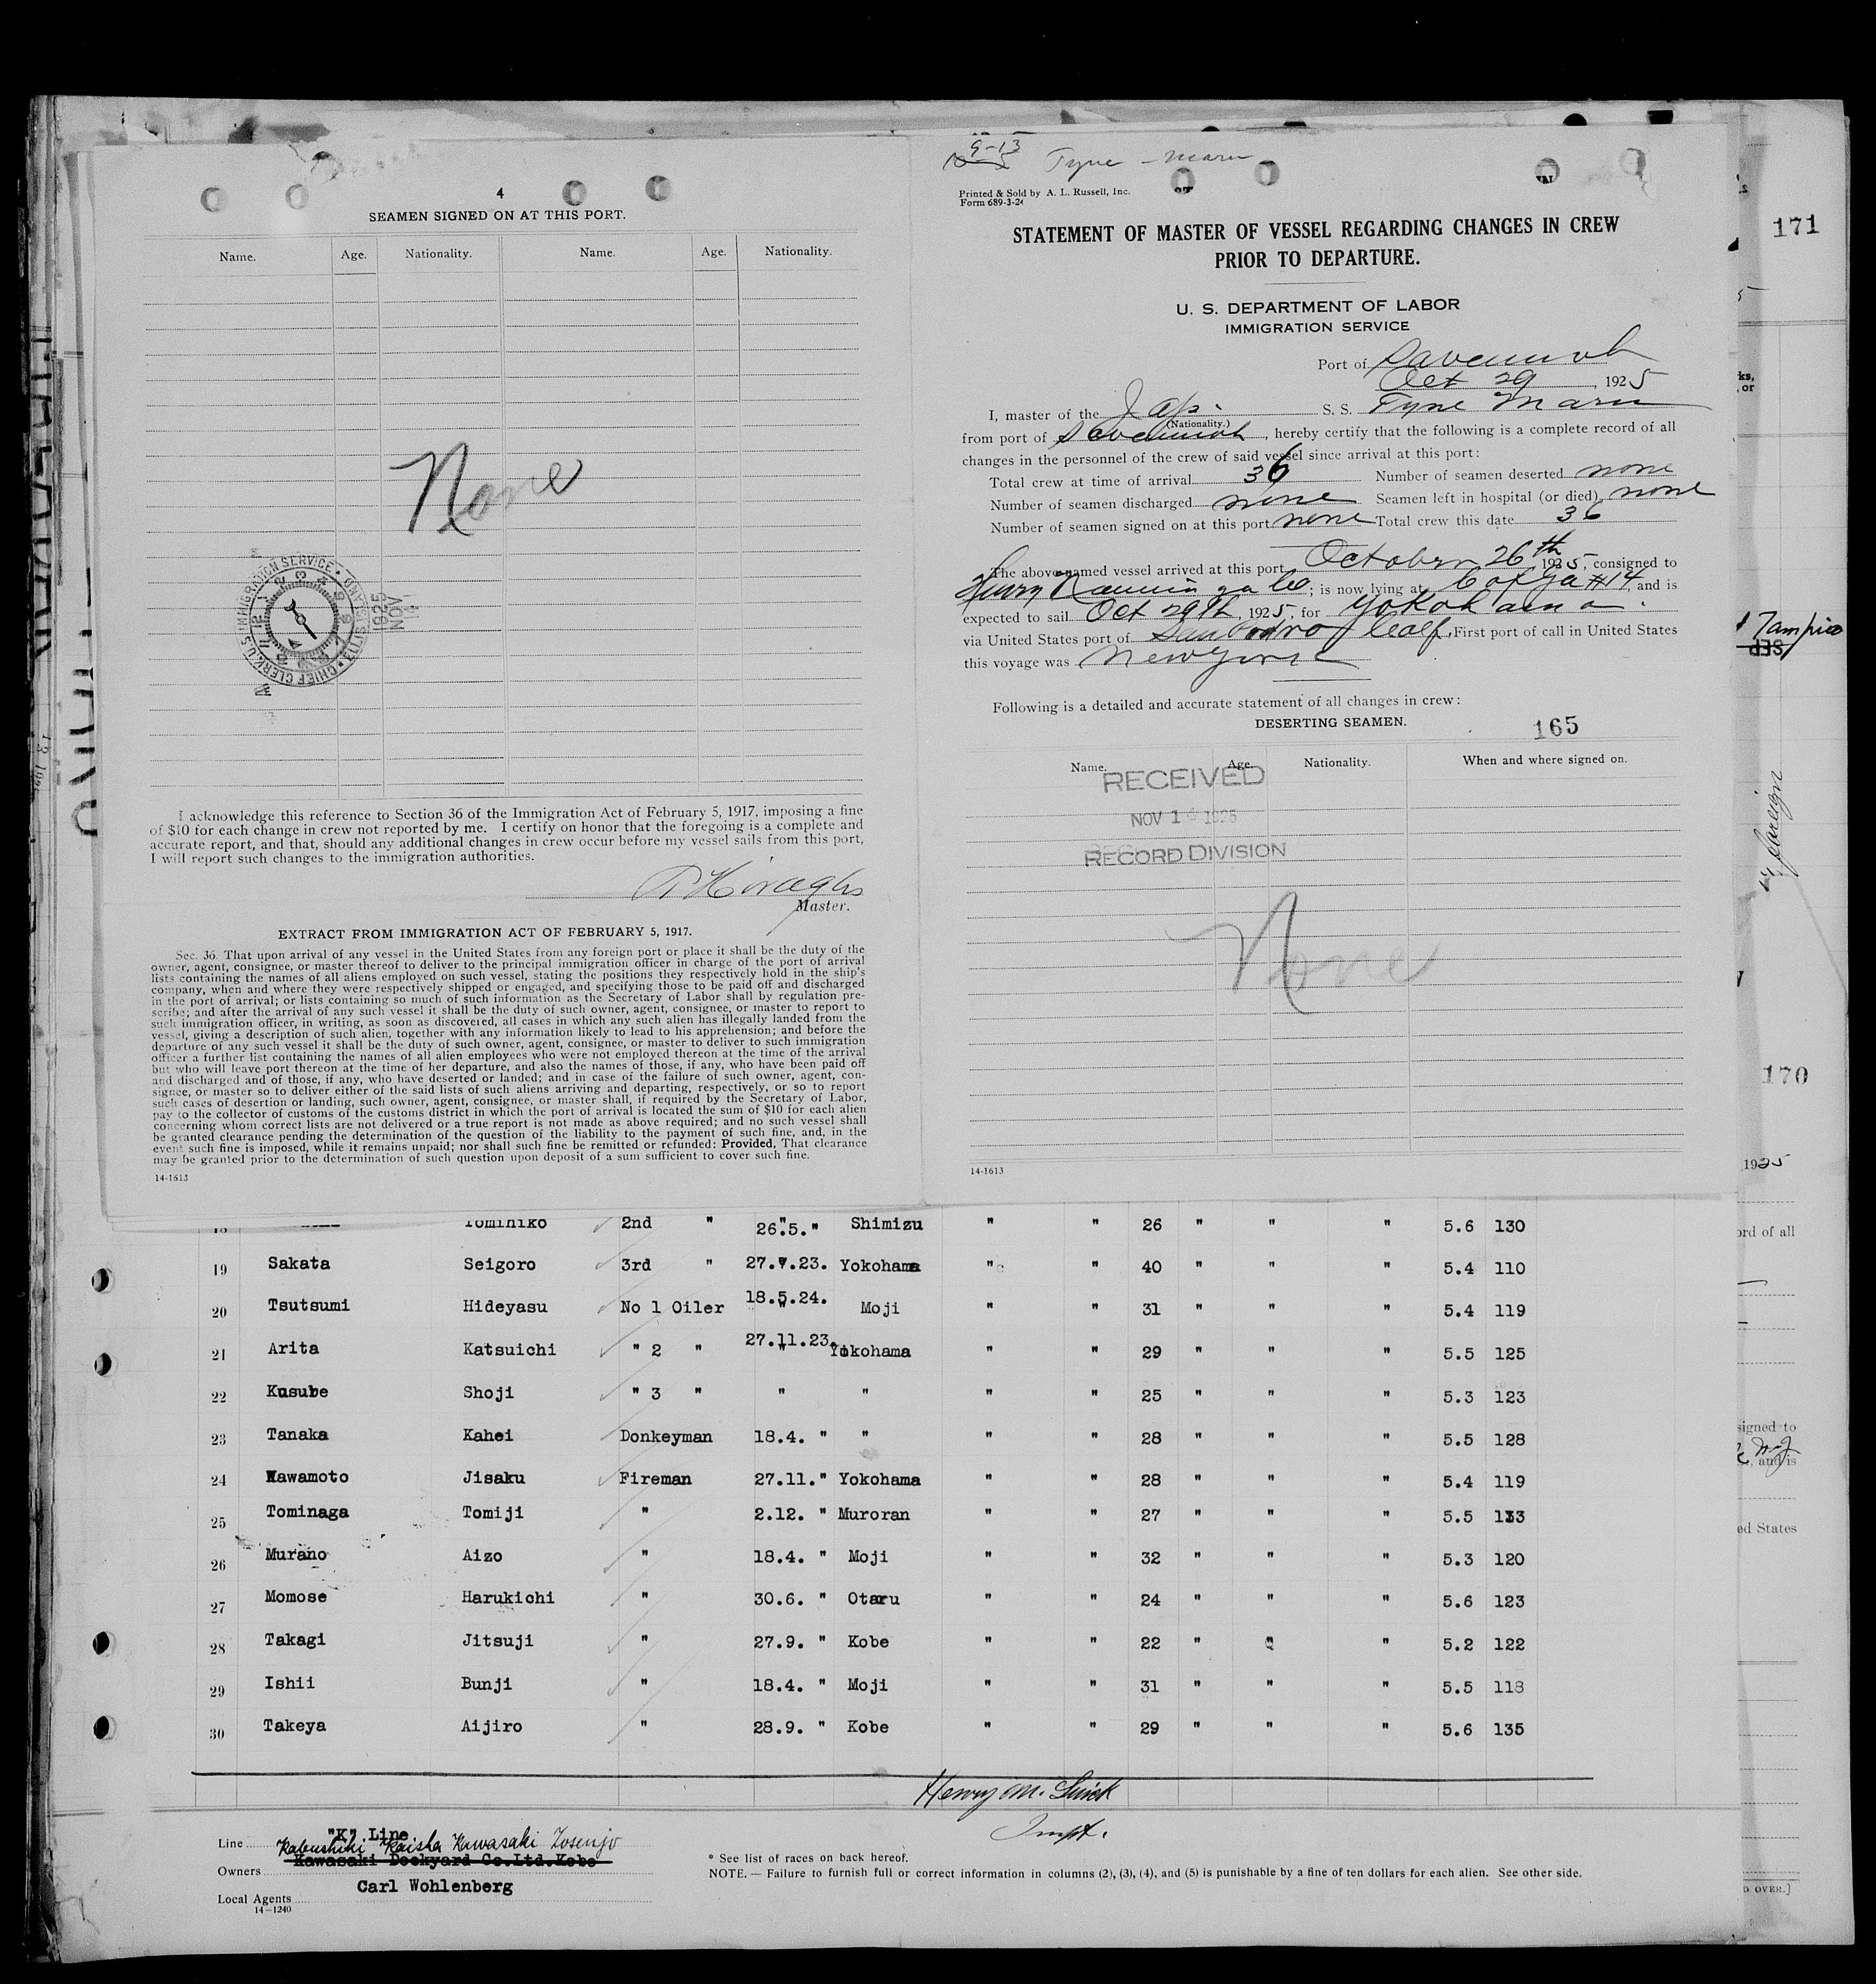 4
SEAMEN SIGNED ON AT THIS PORT.
Name. Age. Nationality. Name. Age. Nationality.
None
U.S. IMMIGRATION SERVICE
CHIEF CLERK
ELLIS ISLAND
1925
NOV
I acknowledge this reference to Section 36 of the Immigration Act of February 5, 1917, imposing a fine
of $10 for each change in crew not reported by me. I certify on honor that the foregoing is a complete and
accurate report, and that, should any additional changes in crew occur before my vessel sails from this port,
I will report such changes to the immigration authorities.
Master.
EXTRACT FROM IMMIGRATION ACT OF FEBRUARY 5, 1917.
Sec. 36. That upon arrival of any vessel in the United States from any foreign port or place it shall be the duty of the
owner, agent, consignee, or master thereof to deliver to the principal immigration officer in charge of the port of arrival
lists containing the names of all aliens employed on such vessel, stating the positions they respectively hold in the ship's
company, when and where they were respectively shipped or engaged, and specifying those to be paid off and discharged
in the port of arrival; or lists containing so much of such information as the Secretary of Labor shall by regulation pre-
scribe; and after the arrival of any such vessel it shall be the duty of such owner, agent, consignee, or master to report to
such immigration officer, in writing, as soon as discovered, all cases in which any such alien has illegally landed from the
vessel, giving a description of such alien, together with any information likely to lead to his apprehension; and before the
departure of any such vessel it shall be the duty of such owner, agent, consignee, or master to deliver to such immigration
officer a further list containing the names of all alien employees who were not employed thereon at the time of the arrival
but who will leave port thereon at the time of her departure, and also the names of those, if any, who have been paid off
and discharged and of those, if any, who have deserted or landed; and in case of the failure of such owner, agent, con-
signee, or master so to deliver either of the said lists of such aliens arriving and departing, respectively, or so to report
such cases of desertion or landing, such owner, agent, consignee, or master shall, if required by the Secretary of Labor,
pay to the collector of customs of the customs district in which the port of arrival is located the sum of $10 for each alien
concerning whom correct lists are not delivered or a true report is not made as above required; and no such vessel shall
be granted clearance pending the determination of the question of the liability to the payment of such fine, and, in the
event such fine is imposed, while it remains unpaid; nor shall such fine be remitted or refunded: Provided, That clearance
may be granted prior to the determination of such question upon deposit of a sum sufficient to cover such fine.
14-1613
9-13 Tyne - Maru
Printed & Sold by A. L. Russell, Inc.
Form 689-3-24
STATEMENT OF MASTER OF VESSEL REGARDING CHANGES IN CREW
PRIOR TO DEPARTURE.
U. S. DEPARTMENT OF LABOR
IMMIGRATION SERVICE
Port of Savannah
Oct 29, 1925
I, master of the Jap. S. S. Tyne Maru
(Nationality.)
from port of Savannah, hereby certify that the following is a complete record of all
changes in the personnel of the crew of said vessel since arrival at this port:
Total crew at time of arrival 36 Number of seamen deserted none
Number of seamen discharged none Seamen left in hospital (or died) none
Number of seamen signed on at this port none Total crew this date 36
The above-named vessel arrived at this port October 26th 1925, consigned to
Henry Co; is now lying at C of Ga #14, and is
expected to sail Oct 29th, 1925, for Yokohama.
via United States port of San Pedro Calf, First port of call in United States
this voyage was New York
Following is a detailed and accurate statement of all changes in crew:
DESERTING SEAMEN.
165
Name. Age. Nationality. When and where signed on.
RECEIVED
NOV 14 1925
RECORD DIVISION
None
14-1613
171
ks,
or
Tampico
SEP
foreign
170
1925
ord of all
signed to
and is
ed States
D OVER.]
18 Tomihiko 2nd " 26.5. " Shimizu " " 26 " " " 5.6 130
19 Sakata Seigoro 3rd " 27.7.23. Yokohama " " 40 " " " 5.4 110
20 Tsutsumi Hideyasu No 1 Oiler 18.5.24. Moji " " 31 " " " 5.4 119
21 Arita Katsuichi " 2 " 27.11.23. Yokohama " " 29 " " " 5.5 125
22 Kusube Shoji " 3 " " " " " 25 " " " 5.3 123
23 Tanaka Kahei Donkeyman 18.4. " " " " 28 " " " 5.5 128
24 Kawamoto Jisaku Fireman 27.11. " Yokohama " " 28 " " " 5.4 119
25 Tominaga Tomiji " 2.12. " Muroran " " 27 " " " 5.5 133
26 Murano Aizo " 18.4. " Moji " " 32 " " " 5.3 120
27 Momose Harukichi " 30.6. " Otaru " " 24 " " " 5.6 123
28 Takagi Jitsuji " 27.9. " Kobe " " 22 " " " 5.2 122
29 Ishii Bunji " 18.4. " Moji " " 31 " " " 5.5 118
30 Takeya Aijiro " 28.9. " Kobe " " 29 " " " 5.6 135
Henry M.
Inspt.
Line "K" Line
Kabushiki Kaisha Kawasaki Zosenjo
Owners Kawasaki Dockyard Co.Ltd.Kobe
Local Agents Carl Wohlenberg
14-1240
* See list of races on back hereof.
NOTE. — Failure to furnish full or correct information in columns (2), (3), (4), and (5) is punishable by a fine of ten dollars for each alien. See other side.